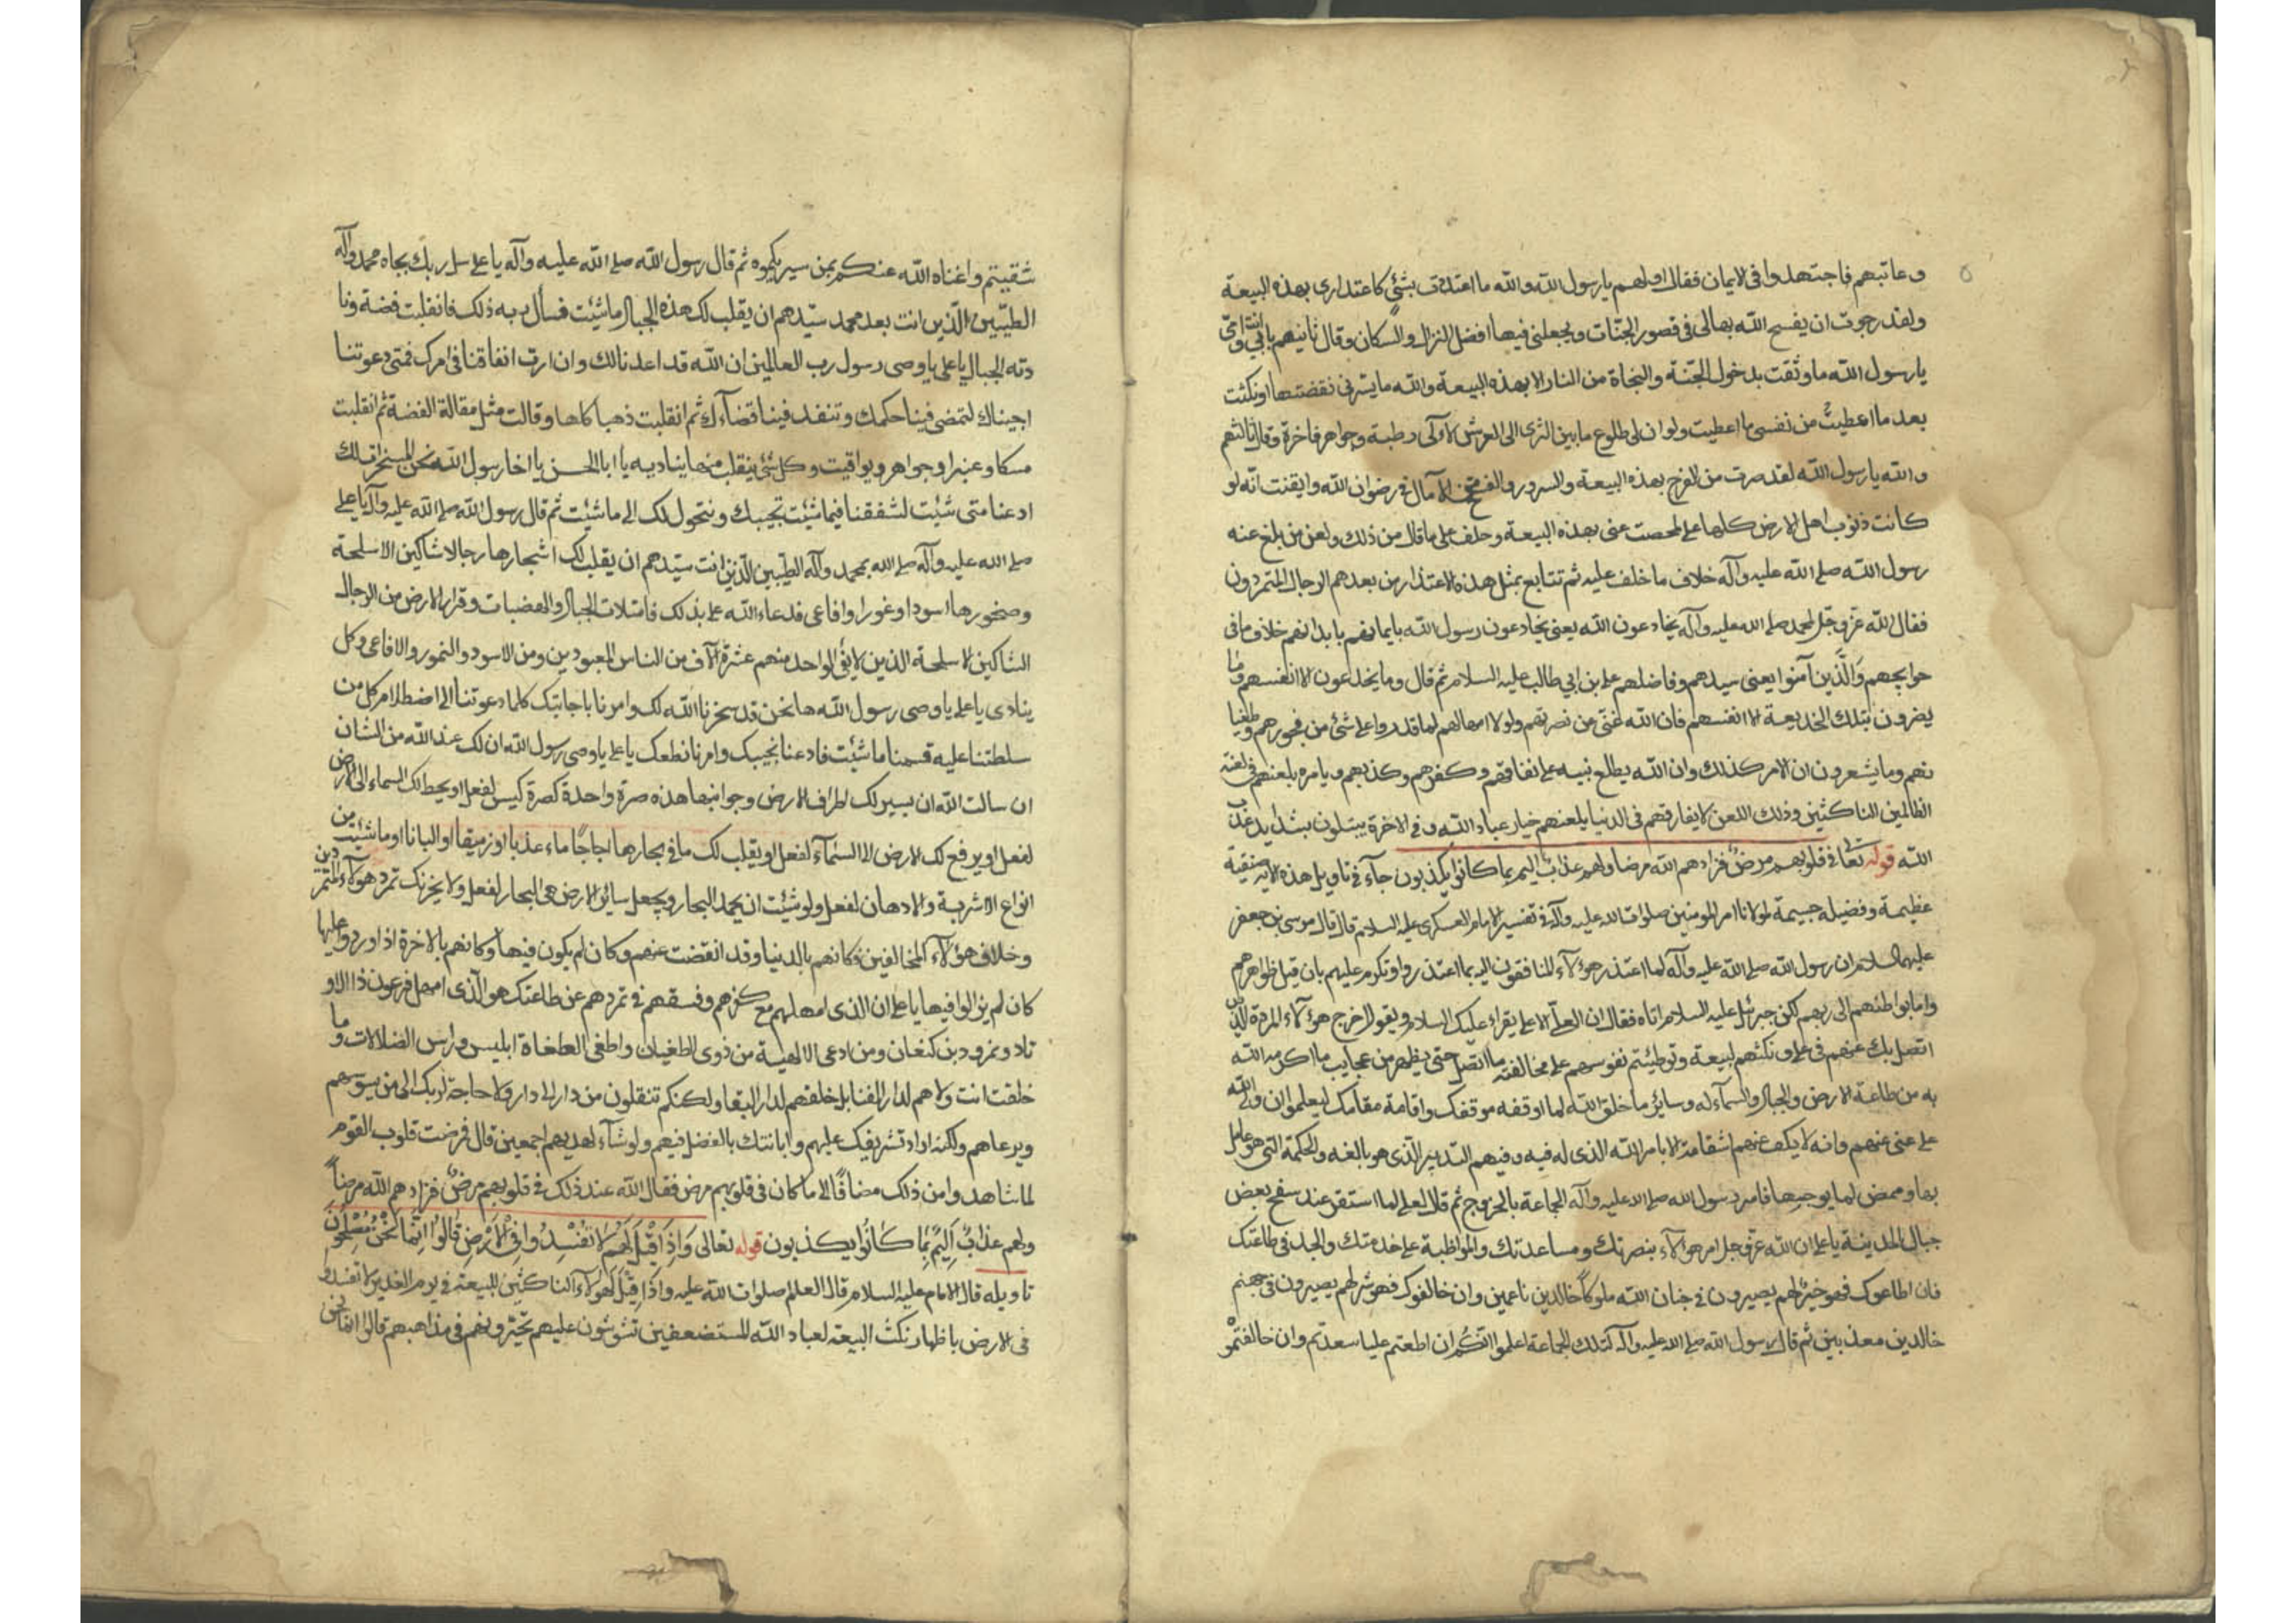 وعاتبهم فاجتهدوا فى الايمان فقال اولهم يا رسول الله والله ما اعتددت بشئ كاعتدادى بهذه البيعة
ولقد رجوت ان يفسح الله بها لى فى قصور الجنات ويجعلنى فيها افضل النزال والسكان وقال ثانيهم بابى انت وامى
يا رسول الله ما وثقت بدخول الجنة والنجاة من النار الا بهذه البيعة والله ما يسرنى نقضتها او نكثت
بعد ما اعطيت من نفسى ما اعطيت ولو ان لى طلوع ما بين الثرى الى العرش لآلى رطبة وجواهر فاخرة وقال ثالثهم
والله يا رسول الله لقد صرت من الفرج بهذه البيعة والسرور والفتح الآمال فى رضوان الله وايقنت انه لو
كانت ذنوب اهل الارض كلها على لمحصت عنى بهذه البيعة وحلف على ما قال من ذلك ولعن من بلغ عنه
رسول الله صلى الله عليه وآله خلاف ما خلف عليه ثم تتابع بمثل هذه الاعتذار من بعدهم الرجال المتمردون
فقال الله عز وجل لمحمد صلى الله عليه وآله يخادعون الله يعنى يخادعون رسول الله بايمانهم بابدانهم خلاف ما فى
حوايجهم وَالَّذين آمنوا يعنى سيدهم وفاضلهم على بن ابي طالب عليه السلام ثم قال وما يخدعون الا انفسهم وما
يضرون بتلك الخديعة الا انفسهم فان الله غنى من نصرتهم ولولا امهالهم لما قدروا على شئ من فجورهم وطغيا
نهم وما يشعرون ان الامر كذلك وان الله يطلع نبيه على نفاقهم وكفرهم وكذبهم ويامره بلعنهم فى لعنة
الظالمين الناكثين وذلك اللعن لا يفارقهم فى الدنيا يلعنهم خيار عباد الله وفى الاخرة يبتلون بشدايد عذاب
الله قوله تعالى فى قلوبهم مرضٌ فزادهم الله مرضا ولهم عذابٌ اليم بما كانوا يكذبون جآء فى تاويل هذه الاية منقبة
عظيمة وفضيلة جسيمة لمولانا امير المومنين صلوات الله عليه وآله فى تفسير الامام العسكرى عليه السلام قال قال موسى بن جعفر
عليهما السلام ان رسول الله صلى الله عليه وآله لما اعتذر هؤلآء المنافقون اليه بما اعتذروا وتكرم عليهم بان قبل ظواهرهم
واما بواطنهم الى ربهم لكن جبرئيل عليه السلام اتاه فقال ان العلى الاعلى يقراء عليك السلام ويقول اخرج هؤلآء المردة الذين
اتصل بك عنهم فى على ونكثهم لبيعة وتوطينهم نفوسهم على مخالفته ما اتصل حتى يظهر من عجايب ما اكرمه الله
به من طاعة الارض والجبال والسمآء له وساير ما خلق الله لما اوقفه موقفك واقامه مقامك ليعلموا ان ولى الله
على غنى عنهم وانه لا يكف عنهم انتقامه الا بامر الله الذى له فيه وفيهم التدبير الذى هو بالغه والحكمة التى هو عامل
بها وممض لما يوجبها فامر رسول الله صلى الله عليه وآله الجماعة بالخروج ثم قال لعلى لما استقر عند سفح بعض
جبال المدينة يا على ان الله عز وجل امر هؤلآء بنصرتك ومساعدتك والمواظبة على خدمتك والجد فى طاعتك
فان اطاعوك فهو خيرٌ لهم يصيرون فى جنان الله ملوكاً خالدين ناعمين وان خالفوك فهو شر لهم يصيرون فى جهنم
خالدين معذبين ثم قال رسول الله صلى الله عليه وآله لتلك الجماعة اعلموا انكم ان اطعتم عليا سعدتم وان خالفتمو
شقيتم واغناه الله عنكم بمن سيريكموه ثم قال رسول الله صلى الله عليه وآله يا على سل ربك بجاه محمد وآله
الطيبين الذين انت بعد محمد سيدهم ان يقلب لك هذه الجبال ماشئت فسأل ربه ذلك فانقلبت فضة ونا
دته الجبال يا على يا وصى رسول رب العالمين ان الله قد اعدنا لك وان اردت انفاقنا فى امرك فمتى دعوتنا
اجبناك لتمضى فينا حكمك وتنفذ فينا قضآءك ثم انقلبت ذهبا كلها وقالت مثل مقالة الفضة ثم انقلبت
مسكا وعنبرا وجواهر ويواقيت وكل شئ ينقلب منها يناديه يا ابا الحسن يا اخا رسول الله نحن المسخرات لك
ادعنا متى شئت لتنفقنا فيما شئت نجيبك ونتحول لك الى ما شئت ثم قال رسول الله صلى الله عليه وآله يا على
صلى الله عليه وآله صلى الله بمحمد وآله الطيبين الذين انت سيدهم ان يقلب لك اشجارها رجالا شاكين الاسلحة
وصخورها اسودا ونمورا وافاعى فدعاء الله على بذلك فامتلات الجبال والهضبات وقرار الارض من الرجال
الشاكين الاسلحة الذين لا يفى الواحد منهم عشرة آلاف من الناس المعبودين ومن الاسود والنمور والافاعى وكل
ينادى يا على يا وصى رسول الله ها نحن قد سخرنا الله لك وامرنا باجابتك كلما دعوتنا الى اصطلام كل من
سلطتنا عليه قسمنا ما شئت فادعنا نجيبك وامرنا نطعك يا على يا وصى رسول الله ان لك عند الله من الشان
ان سالت الله ان يسير لك اطراف الارض وجوانبها هذه صرة واحدة كصرة كيس لفعل او يحط لك السماء الى الارض
لفعل او يرفع لك الارض الى السمآء لفعل او يقلب لك ما فى بحارها اجاجاً ماء عذبا او زيبقا او البانا او ما شئت من
انواع الاشربة والادهان لفعل ولو شئت ان يجمد البحار ويجعل ساير الارض هى البحار لفعل ولا يحزنك تمرد هولآء المتمردين
وخلاف هؤلآء المخالفين فكانهم بالدنيا وقد انقضت عنهم وكان لم يكون فيها وكانهم بالاخرة اذا وردوا عليها
كان لم يزالوا فيها يا على ان الذى امهلهم مع كفرهم وفسقهم فى تمردهم عن طاعتك هو الذى امهل فرعون ذا الاو
تاد ونمرود بن كنعان ومن ادعى الالهية من ذوى الطغيان واطغى الطغاة ابليس وراس الضلالات وما
خلقت انت ولا هم لدار الفنا بل خلقهم لدار البقا ولكنكم تنقلون من دار الى دار ولا حاجة لربك الى من يسوسهم
ويرعاهم ولكنه اراد تشريفك عليهم وابانتك بالفضل فيهم ولو شآء لهديهم اجمعين قال فمرضت قلوب القوم
لما شاهدوا من ذلك مضافاً الى ما كان فى قلوبهم مرض فقال الله عند ذلك فى قلوبهم مرضٌ فزادهم الله مرضاً
ولهم عذابٌ اَليمٌ بِما كانُوا يكذبون قوله تعالى وَاِذَا قيلَ لَهُم لا تُفْسِدُوا فِى الاَرْضِ قالُوا اِنَّما نَحْنُ مُصْلِحُونَ
تاويله قال الامام عليه السلام قال العالم صلوات الله عليه واذا قيل لهولآء الناكثين للبيعة فى يوم الغدير لا تفسدوا
فى الارض باظهار نكث البيعة لعباد الله المستضعفين تشوشون عليهم تحيرونهم فى مذاهبهم قالوا انما نحن